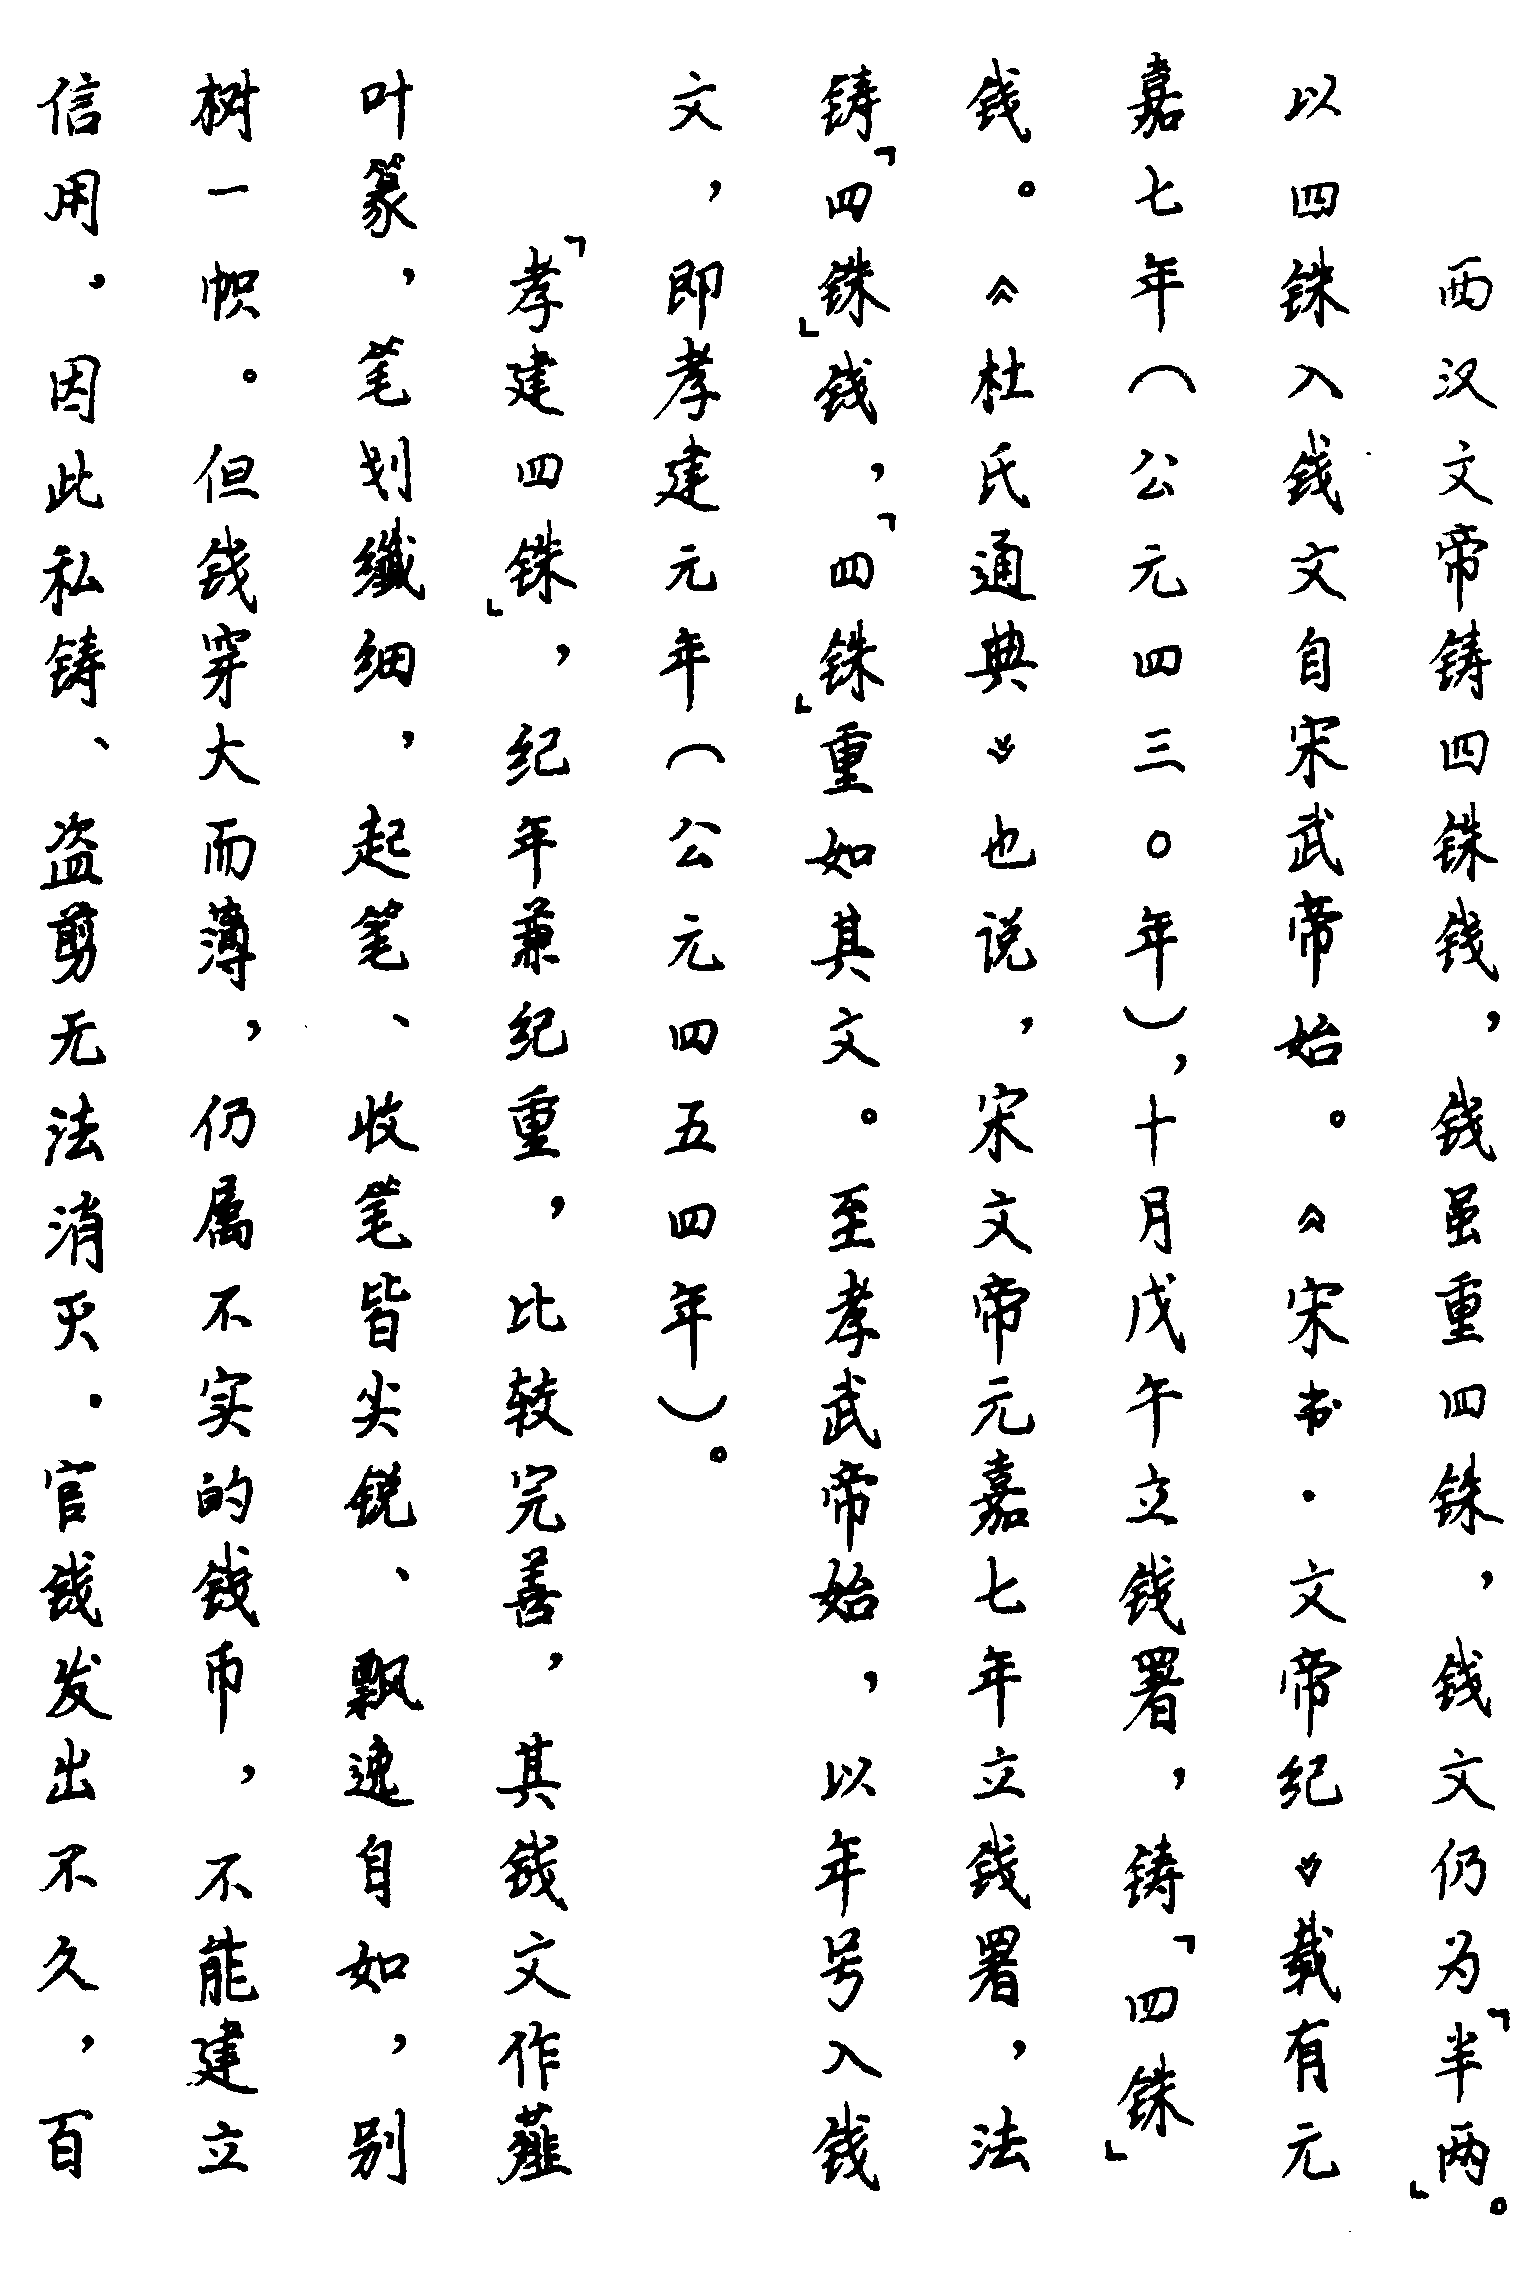 西汉文帝铸四铢钱，钱虽重四铢，钱文仍为「半两」。
以四铢入钱文自宋武帝始。《宋书·文帝纪》载有元
嘉七年（公元四三〇年），十月戊午立钱署，铸「四铢」
钱。《杜氏通典》也说，宋文帝元嘉七年立钱署，法
铸「四铢」钱，「四铢」重如其文。至孝武帝始，以年号入钱
文，即孝建元年（公元四五四年）。
「孝建四铢」，纪年兼纪重，比较完善，其钱文作薤
叶篆，笔划纤细，起笔、收笔皆尖锐、飘逸自如，别
树一帜。但钱穿大而薄，仍属不实的钱币，不能建立
信用。因此私铸、盗剪无法消灭。官钱发出不久，百